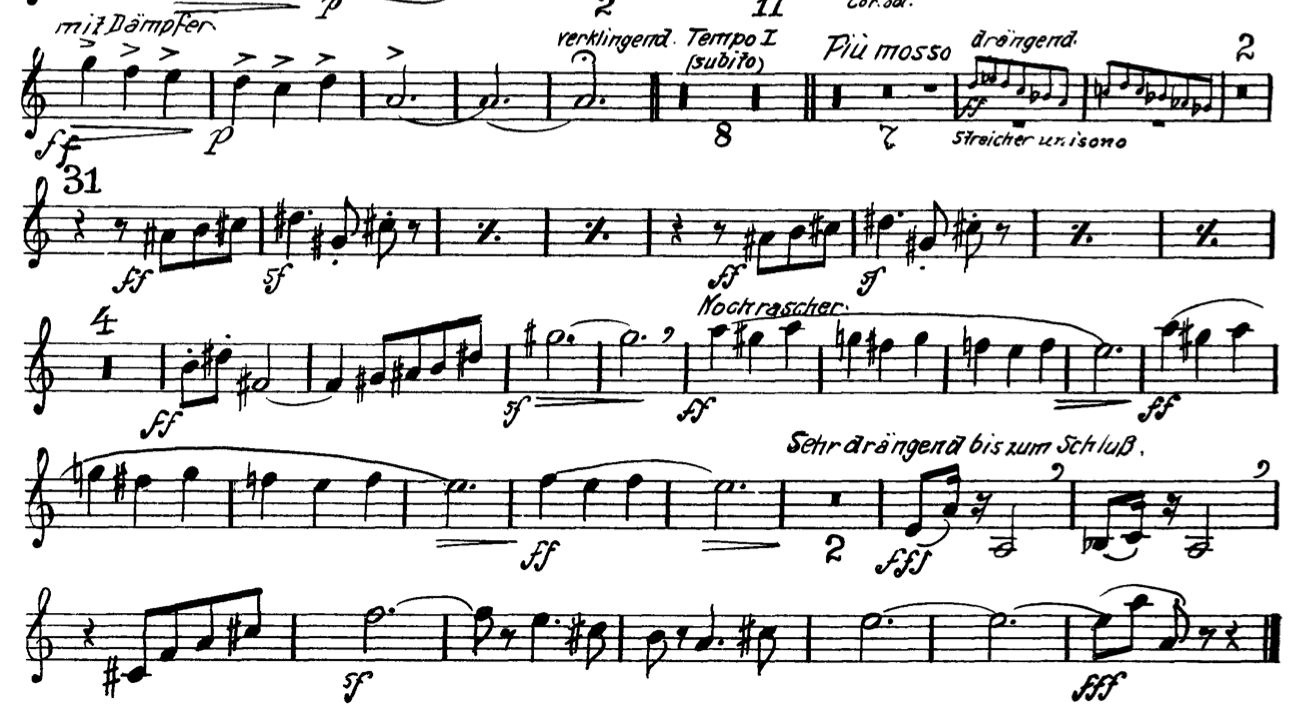 p 2 11 Cor. sol.
mit Dämpfer.
verklingend. Tempo I
(subito)
Più mosso drängend. 2
ff p 8 7 ff
Streicher unisono
31
ff sf ff sf
4 Noch rascher.
ff sf ff ff
Sehr drängend bis zum Schluß.
ff 2 fff
sf fff